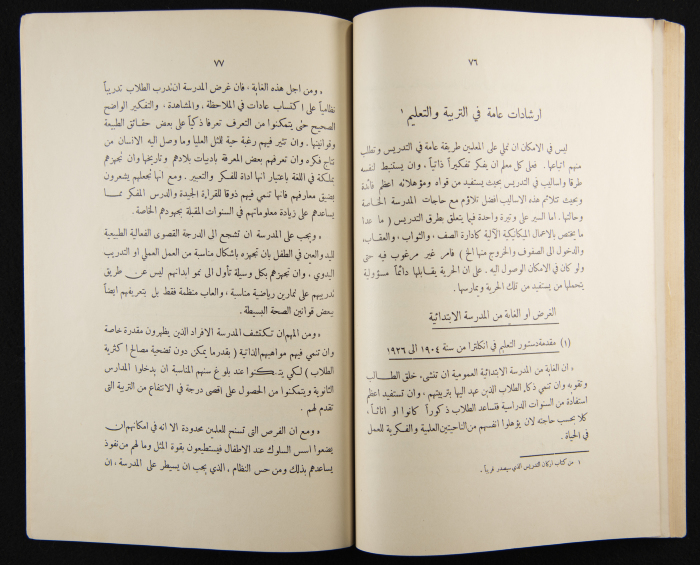 ٧٦
ارشادات عامة في التربية والتعليم ١
ليس في الامكان ان تملى على المعلمين طريقة عامة في التدريس وتطلب
منهم اتباعها. فعلى كل معلم ان يفكر تفكيراً ذاتياً. وان يستنبط لنفسه
طرقا واساليب في التدريس بحيث يستفيد من قواه ومؤهلاته اعظم فائدة
وبحيث تتلائم هذه الاساليب افضل تلاؤم مع حاجات المدرسة الخاصة
وحالتها. اما السير على وتيرة واحدة فيما يتعلق بطرق التدريس ( ما عدا
ما يختص بالاعمال الميكانيكية الآلية كادارة الصف، والثواب، والعقاب،
والدخول الى الصفوف والخروج منها الخ ) فامر غير مرغوب فيه حتى
ولو كان في الامكان الوصول اليه. على ان الحرية يقابلها دائماً مسؤولية
يتحملها من يستفيد من تلك الحرية ويمارسها.
الغرض او الغاية من المدرسة الابتدائية
(١) مقدمة دستور التعليم في انكلترا من سنة ١٩٠٤ الى ١٩٢٦
« ان الغاية من المدرسة الابتدائية العمومية ان تنشىء خلق الطالب
وتقويه وان تنمي ذكاء الطلاب الذين عهد اليها بتربيتهم، وان تستفيد اعظم
استفادة من السنوات الدراسية فتساعد الطلاب ذكوراً كانوا او اناثاً،
كلا بحسب حاجته لان يؤهلوا انفسهم من الناحيتين العلمية والفكرية للعمل
في الحياة.
١ من كتاب اركان التدريس الذي سيصدر قريباً.
٧٧
« ومن اجل هذه الغاية، فان غرض المدرسة ان تدرب الطلاب تدريباً
نظامياً على اكتساب عادات في الملاحظة، والمشاهدة، والتفكير الواضح
الصحيح حتى يتمكنوا من التعرف تعرفا ذكياً على بعض حقائق الطبيعة
وقوانينها. وان تثير فيهم رغبة حية للمثل العليا وما وصل اليه الانسان من
نتاج فكره وان تعرفهم بعض المعرفة بادبيات بلادهم وتاريخها وان تجهزهم
بملكة في اللغة باعتبار انها اداة للفكر والتعبير. ومع انها تجعلهم يشعرون
بضيق معارفهم فانها تنمي فيهم ذوقا للقراءة الجيدة والدرس المفكر مما
يساعدهم على زيادة معلوماتهم في السنوات المقبلة بجهودهم الخاصة.
« ويجب على المدرسة ان تشجع الى الدرجة القصوى الفعالية الطبيعية
لليد والعين في الطفل بان تجهزه باشكال مناسبة من العمل العملي او التدريب
اليدوي. وان تجهزهم بكل وسيلة تأول الى نمو ابدانهم ليس عن طريق
تدريبهم على تمارين رياضية مناسبة، والعاب منظمة فقط بل بتعريفهم ايضاً
ببعض قوانين الصحة البسيطة.
« ومن المهم ان تكتشف المدرسة الافراد الذين يظهرون مقدرة خاصة
وان تنمي فيهم مواهبهم الذاتية ( بقدر ما يمكن دون تضحية مصالح اكثرية
الطلاب ) لكي يتمكنوا عند بلوغ سنهم المناسبة ان يدخلوا المدارس
الثانوية ويتمكنوا من الحصول على اقصى درجة في الانتفاع من التربية التى
تقدم لهم.
« ومع ان الفرص التى تسنح للمعلمين محدودة الا انه في امكانهم ان
يضعوا اسس السلوك عند الاطفال فيستطيعون بقوة المثل وما لهم من نفوذ
يساعدهم بذلك ومن حس النظام، الذي يجب ان يسيطر على المدرسة، ان